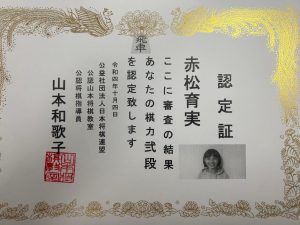 飛車
認定証
赤松育実
ここに審査の結果
あなたの棋力弐段
を認定致します
令和四年十月四日
公益社団法人日本将棋連盟
公認山本将棋教室
公認将棋指導員
山本和歌子